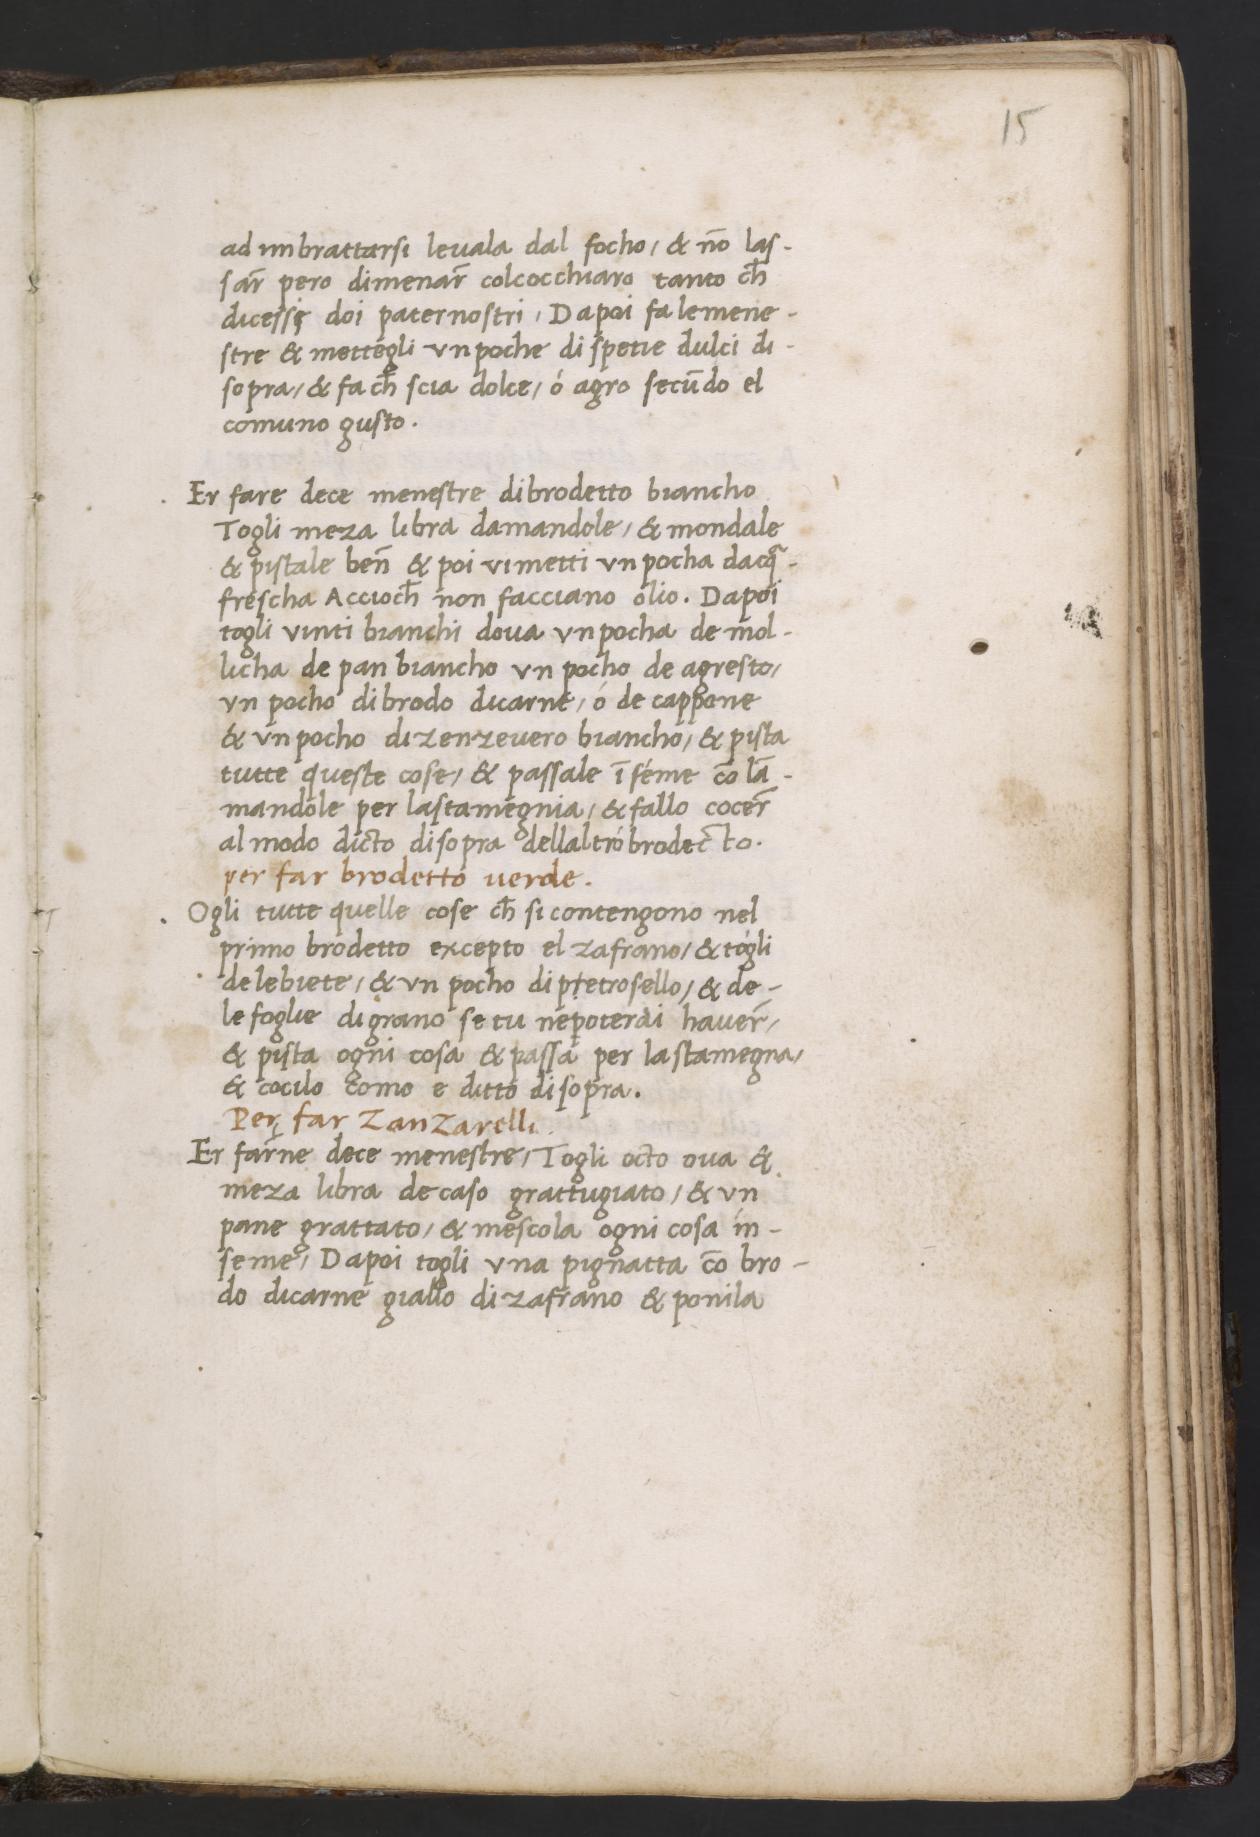 15
ad imbrattarsi levala dal focho, & nō las-
sar̄ pero dimenar̄ colcocchiaro tanto ch̄
dicessi doi paternostri, Dapoi fa lemene-
stre & mettegli vn poche di spetie dulci di-
sopra, & fa ch̄ scia dolce, ó agro secūdo el
comuno gusto.
Er fare dece menestre di brodetto biancho
Togli meza libra damandole, & mondale
& pistale ben̄ & poi vi metti vn pocha dacq̄-
frescha Accioch̄ non facciano olio. Dapoi
togli vinti bianchi dova vn pocha de mol-
licha de pan biancho vn pocho de agresto,
vn pocho di brodo dicarne, ó de cappone
& vn pocho di zenzevero biancho, & pista
tutte queste cose, & passale ī seme cō lā-
mandole per la stamegnia, & fallo cocer̄
al modo dicto disopra dellaltro brodecto.
per far brodetto verde.
Ogli tutte quelle cose ch̄ si contengono nel
primo brodetto excepto el zafrano, & togli
dele biete, & vn pocho di pietrosello, & de-
le foglie di grano se tu ne poterai haver̄,
& pista ogni cosa & passa per la stamegna,
& cocilo como e ditto disopra.
Per far Zanzarelli.
Er farne dece menestre, Togli octo ova &
meza libra de caso grattugiato, & vn
pane grattato, & mescola ogni cosa in-
seme, Dapoi togli vna pignatta cō bro-
do dicarne giallo di zafrano & ponila